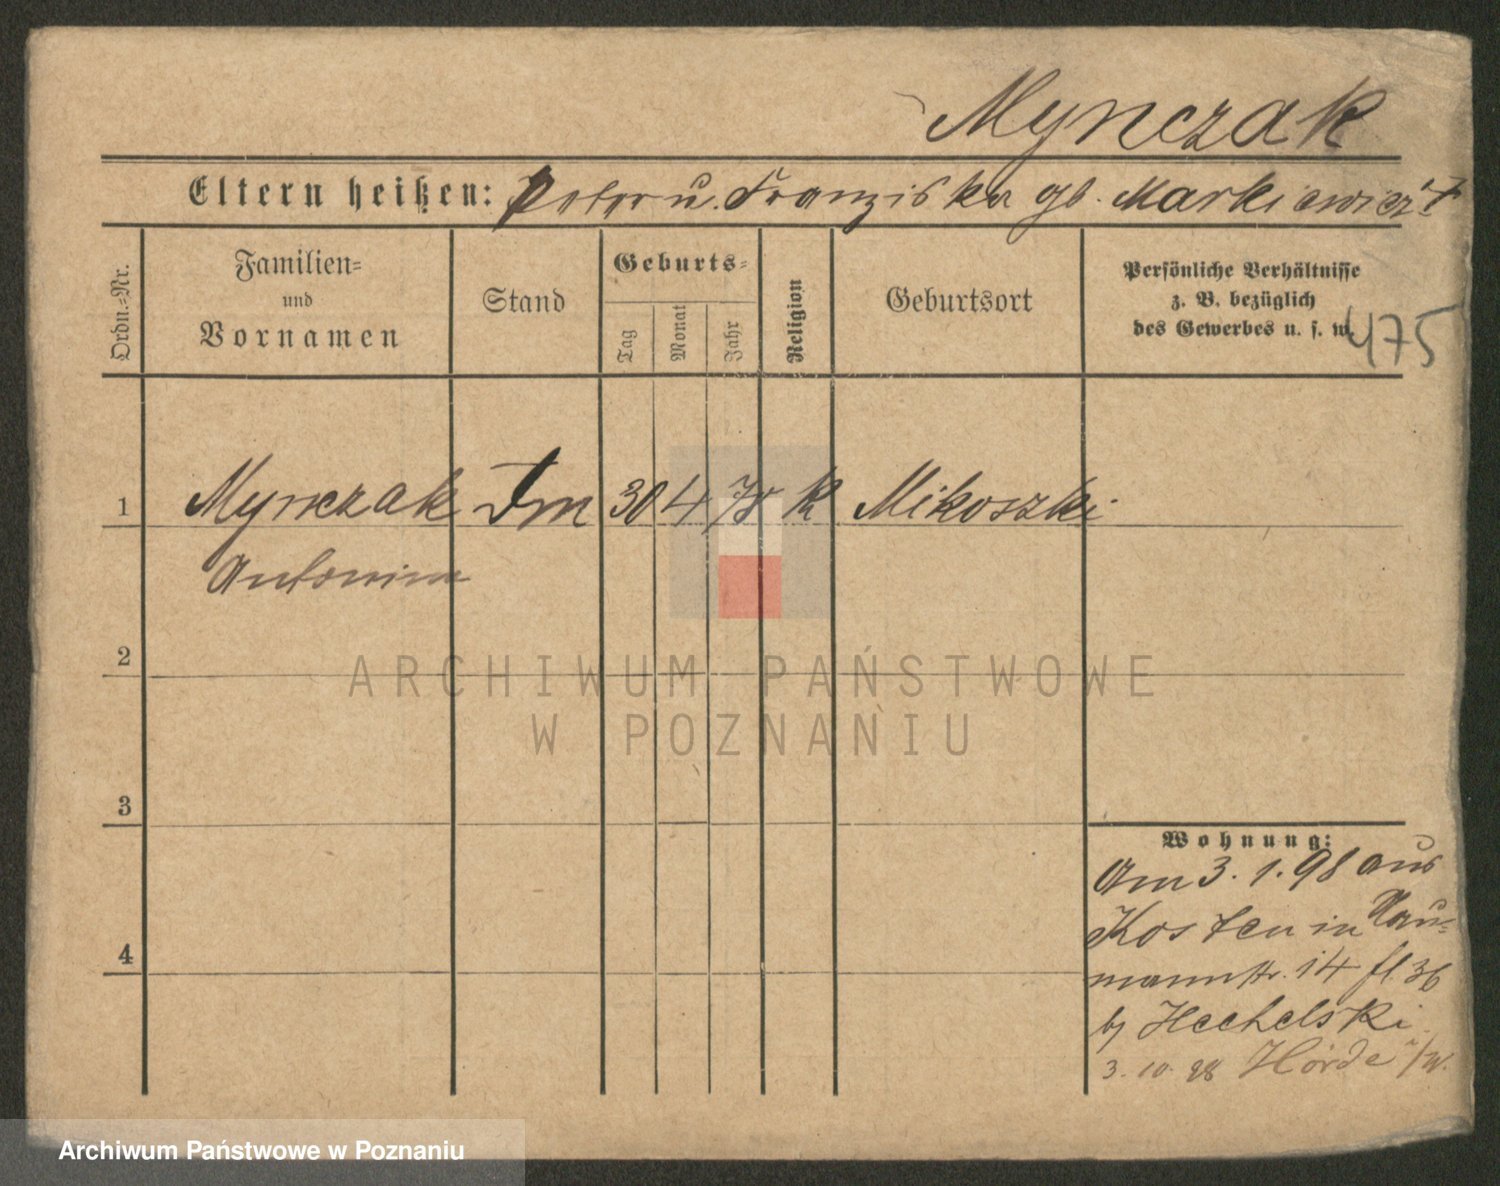 Mynczak
Eltern heißen: Peter u. Franziska gb. Markiewicz
Ordn.-Nr.
Familien-
und
Vornamen
Stand
Geburts-
Tag
Monat
Jahr
Religion
Geburtsort
Persönliche Verhältnisse
z. B. bezüglich
des Gewerbes u. s. w.
475
1 Mynczak 30 4 78 K Mikoszki
Antonina
2
3
4
Wohnung:
Am 3.1.98 aus
Kosten in Nau-
mannstr. 14
b/ Hechelski
3.10.98 Hörde i/W.
ARCHIWUM PAŃSTWOWE
W POZNANIU
Archiwum Państwowe w Poznaniu